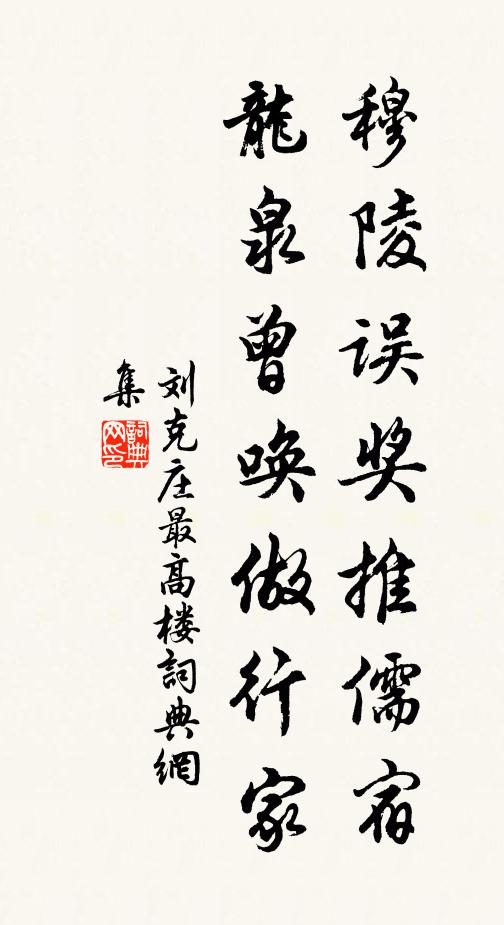 穆陵误奖推儒宿
龍泉曾唤做行家
刘克庄最高楼詞典網
集
詞典
网印